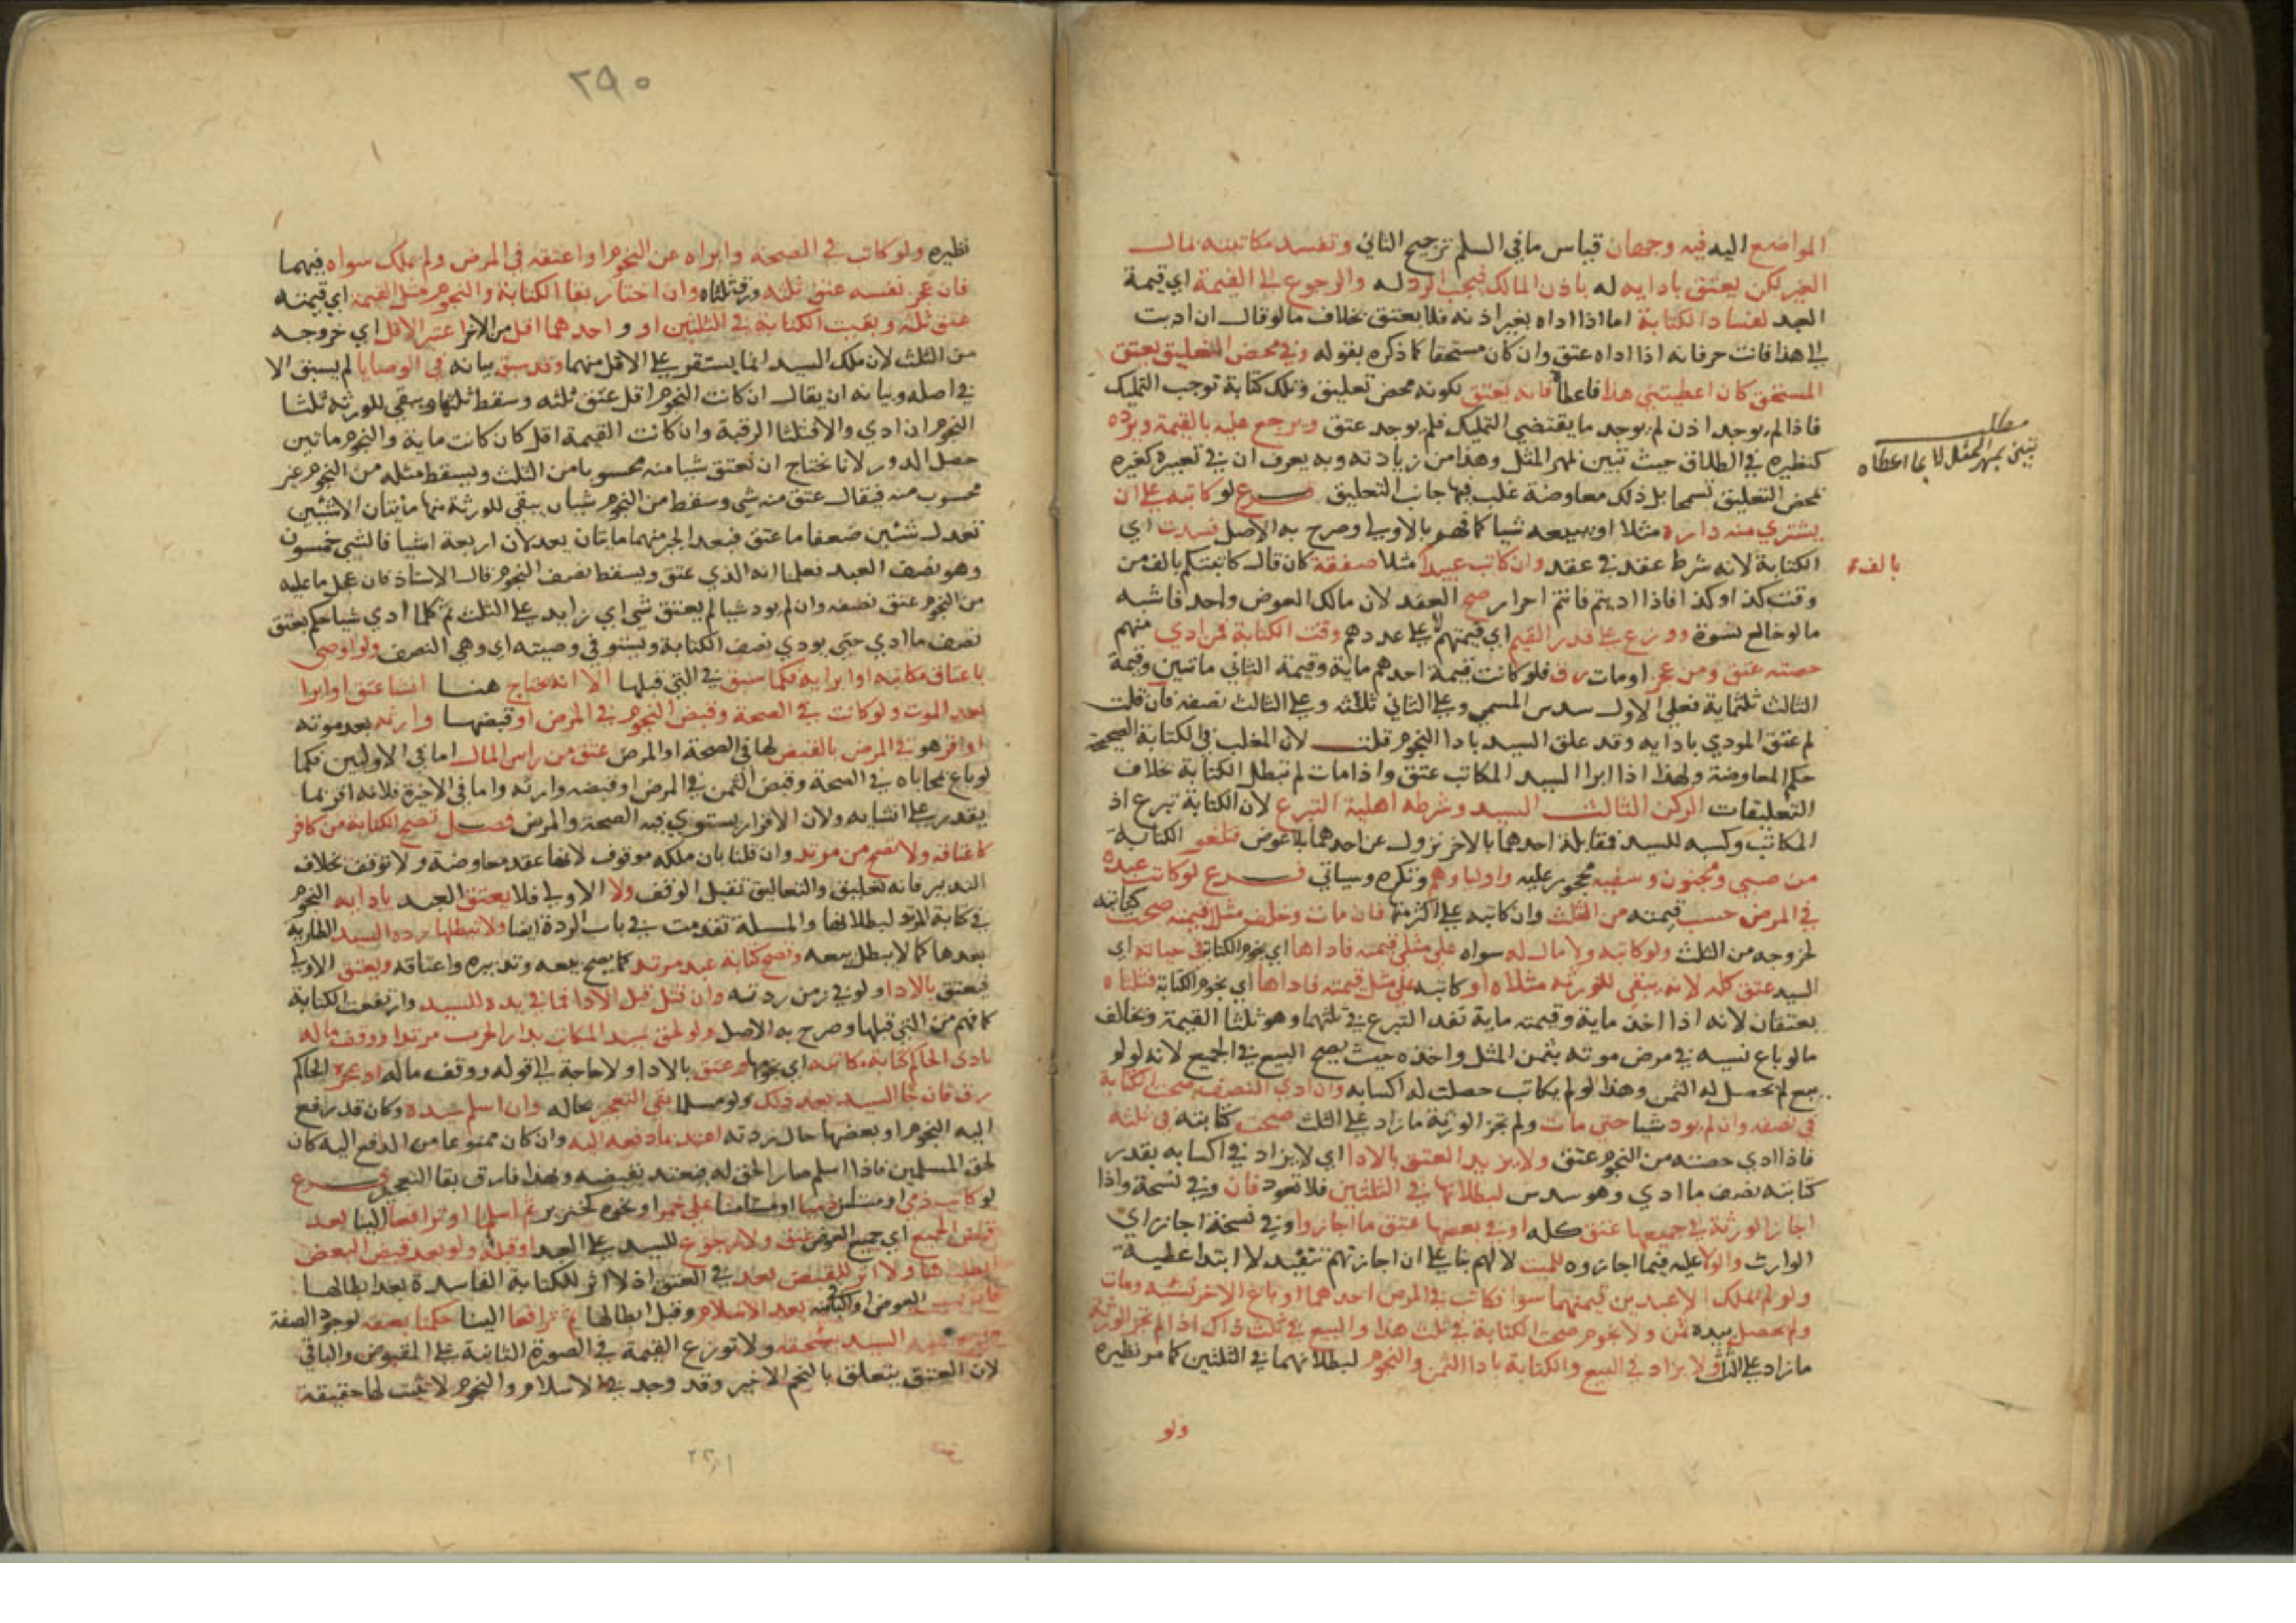 المواضع اليه فيه وجهان قياس ما في السلم ترجيح الثاني وتفسد مكاتبته بمال
الغير لكن يعتق بادايه له باذن المالك فيجب الرد له والرجوع الى القيمة اي قيمة
العبد لفساد الكتابة اما اذا اداه بغير اذنه فلا يعتق بخلاف ما لو قال ان اديت
الي هذا فانت حر فانه اذا اداه عتق وان كان مستحقا كما ذكره بقوله وفي محض التعليق يعتق
المستحق كان اعطيتني هذا فاعطاه فانه يعتق لكونه محض تعليق وتلك كتابة توجب التمليك
فاذا لم يوجد اذن لم يوجد ما يقتضي التمليك فلم يوجد عتق ويرجع عليه بالقيمة ويرده
كنظيره في الطلاق حيث تبين بمهر المثل وهذا من زيادته وبه يعرف ان في تعبيره كغيره
بمحض التعليق تسمحا بل ذلك معاوضة غلب فيها جانب التعليق فرع لو كاتبه على ان
يشتري منه داره مثلا او يبيعه شيا كما فهم بالاولى وصرح به الاصل فسدت اي
الكتابة لانه شرط عقد في عقد وان كاتب عبيدا مثلا صفقة كان قال كاتبتكم بالف من
وقت كذا وكذا فاذا اديتم فانتم احرار صح العقد لان مالك العوض واحد فاشبه
ما لو خالع نسوة ووزع على قدر القيم اي قيمتهم لا على عددهم وقت الكتابة فمن ادي منهم
حصته عتق ومن عجز او مات رق فلو كانت قيمة احدهم ماية وقيمة الثاني ماتين وقيمة
الثالث ثلثماية فعلى الاول سدس المسمى وعلى الثاني ثلثه وعلى الثالث نصفه فان قلت
لم عتق المودي بادايه وقد علق السيد بادا النجوم قلت لان المغلب في الكتابة الصحيحة
حكم المعاوضة ولهذا اذا ابرا السيد المكاتب عتق واذا مات لم تبطل الكتابة بخلاف
التعليقات الركن الثالث السيد وشرطه اهلية التبرع لان الكتابة تبرع اذ
المكاتب وكسبه للسيد فمقابلة احدهما بالاخر نزول عن احدهما بلا عوض فتلغو الكتابة
من صبي ومجنون وسفيه محجور عليه واولياوهم ومكره وسياتي فرع لو كاتب عبده
في المرض حسب قيمته من الثلث وان كاتبه على اكثر منها فان مات وخلف مثلي قيمته صحت كتابته
لخروجه من الثلث ولو كاتبه ولا مال له سواه على مثلي قيمته فاداها اي نجوم الكتابة في حياته اي
السيد عتق كله لانه يبقى للورثه مثلاه او كاتبه على مثل قيمته فاداها اي نجوم الكتابة فثلثاه
يعتقان لانه اذا اخذ ماية وقيمته ماية نفذ التبرع في ثلثهما وهو ثلثا القيمة ويخالف
ما لو باع نسيه في مرض موته بثمن المثل واخذه حيث يصح البيع في الجميع لانه لو لم
يبع لم يحصل له الثمن وهذا لو لم يكاتب حصلت له اكسابه وان ادي النصف صحت الكتابة
في نصفه وان لم يود شيا حتى مات ولم تجز الورثة ما زاد على الثلث صحت كتابته في ثلثه
فاذا ادي حصته من النجوم عتق ولا يزيد العتق بالادا اي لا يزاد في اكسابه بقدر
كتابته نصف ما ادي وهو سدس لبطلانها في الثلثين فلا تعود فان وفي نسخة واذا
اجاز الورثة في جميعها عتق كله او في بعضها عتق ما اجازوا وفي نسخة اجاز اي
الوارث والولا عليه فيما اجازوه للميت لا لهم بنا على ان اجازتهم تنفيذ لا ابتدا عطية
ولو لم يملك الا عبدين قيمتهما سوا فكاتب في المرض احدهما او باع الاخر نسيه ومات
ولم يحصل بيده ثمن ولا نجوم صحت الكتابة في ثلث هذا والبيع في ثلث ذاك اذا لم تجز الورثة
ما زاد على الثلث ولا يزاد في البيع والكتابة بادا الثمن والنجوم لبطلانهما في الثلثين كما مر نظيره
ولو
مطلب
تبين بمهر المثل لا بما اعطاه
بالف
٢٩٠
نظيره ولو كاتب في الصحة وابراه عن النجوم او اعتقه في المرض ولم يملك سواه فيهما
فان عجز نفسه عتق ثلثه ورق ثلثاه وان اختار بقا الكتابة والنجوم مثل القيمة اي قيمته
عتق ثلثه وبقيت الكتابة في الثلثين او واحدهما اقل من الاخر اعتبر الاقل اي خروجه
من الثلث لان ملك السيد انما يستقر على الاقل منهما وقد سبق بيانه في الوصايا لم يسبق الا
في اصله وبيانه ان يقال ان كانت النجوم اقل عتق ثلثه وسقط ثلثها ويبقى للورثه ثلثا
النجوم ان ادي والا فثلثا الرقبة وان كانت القيمة اقل كان كانت ماية والنجوم ماتين
حصل الدور لانا نحتاج ان نعتق شيا منه محسوبا من الثلث ويسقط مثله من النجوم غير
محسوب منه فيقال عتق منه شي وسقط من النجوم شيان يبقى للورثة منها مايتان الا شيين
تعدل شيئين ضعفا ما عتق فبعد الجبر منهما مايتان يعدلان اربعة اشيا فالشي خمسون
وهو نصف العبد فعلمنا انه الذي عتق ويسقط نصف النجوم قال الاستاذ فان عجل ما عليه
من النجوم عتق نصفه وان لم يود شيا لم يعتق شي اي زايد على الثلث ثم كلما ادي شيا حكم بعتق
نصف ما ادي حتى يودي نصف الكتابة ويستوفي وصيته اي وهي النصف ولو اوصى
باعتاق مكاتبه او ابرايه فكما سبق في التي قبلها الا انه يحتاج هنا انشا عتق او ابرا
بعد الموت ولو كاتب في الصحة وقبض النجوم في المرض او قبضها وارثه بعد موته
او اقر هو في المرض بالقبض لها في الصحة او المرض عتق من راس المال اما في الاوليين فكما
لو باع بمحاباه في الصحة وقبض الثمن في المرض او قبضه وارثه واما في الاخيرة فلانه اقر بما
يقدر على انشايه ولان الاقرار يستوي فيه الصحة والمرض فصل تصح الكتابة من كافر
كاعتاقه ولا تصح من مرتد وان قلنا بان ملكه موقوف لانها عقد معاوضة ولا توقف بخلاف
التدبير فانه تعليق والتعاليق تقبل الوقف ولا الاولى فلا يعتق العبد بادايه النجوم
في كتابة المرتد لبطلانها والمسلة تقدمت في باب الردة ايضا ولا تبطلها ردة السيد الطارية
بعدها كما لا يبطل بيعه وتصح كتابة عبد مرتد كما يصح بيعه وتدبيره واعتاقه ويعتق الاولى
فيعتق بالادا ولو في زمن ردته وان قتل قبل الادا فما في يده للسيد وارتفعت الكتابة
كما فهم من التي قبلها وصرح به الاصل ولو لحق سيد المكاتب بدار الحرب مرتدا ووقف ماله
تادى الحاكم كتابة مكاتبه اي نجومها وعتق بالادا ولا حاجة الى قوله ووقف ماله او عجزه الحاكم
رق فان جا السيد بعد ذلك ولو مسلما بقي التعجيز بحاله وان اسلم سيده وكان قد رفع
اليه النجوم او بعضها حال ردته اعتد بما دفعه اليه وان كان ممنوعا من الدفع اليه كان
لحق المسلمين فاذا اسلم صار الحق له فيعتد بقبضه وبهذا فارق بقا التعجيز فرع
لو كاتب ذمي او مستامن ذميا او مستامنا على خمر او نحوه كخنزير ثم اسلما او ترافعا الينا بعد
قبض الجميع اي جميع العوض عتق ولا رجوع للسيد على العبد او قبله ولو بعد قبض البعض
ابطلناها ولا اثر للقبض بعد في العتق اذ لا اثر للكتابة الفاسدة بعد ابطالها
العوض او باقيه بعد الاسلام وقبل ابطالها ثم ترافعا الينا حكمنا بعتقه لوجود الصفة
السيد ولا توزع القيمة في الصورة الثانية على المقبوض والباقي
لان العتق يتعلق بالنجم الاخير وقد وجد في الاسلام والنجوم لا تثبت لها حقيقة